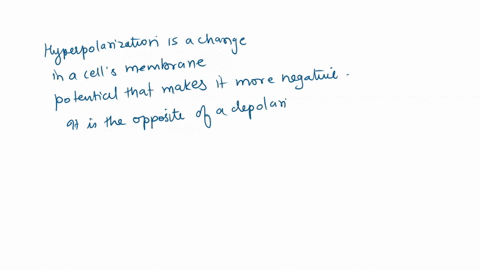 Hyperpolarization is a change
in a cell's membrane
potential that makes it more negative.
It is the opposite of a depolari